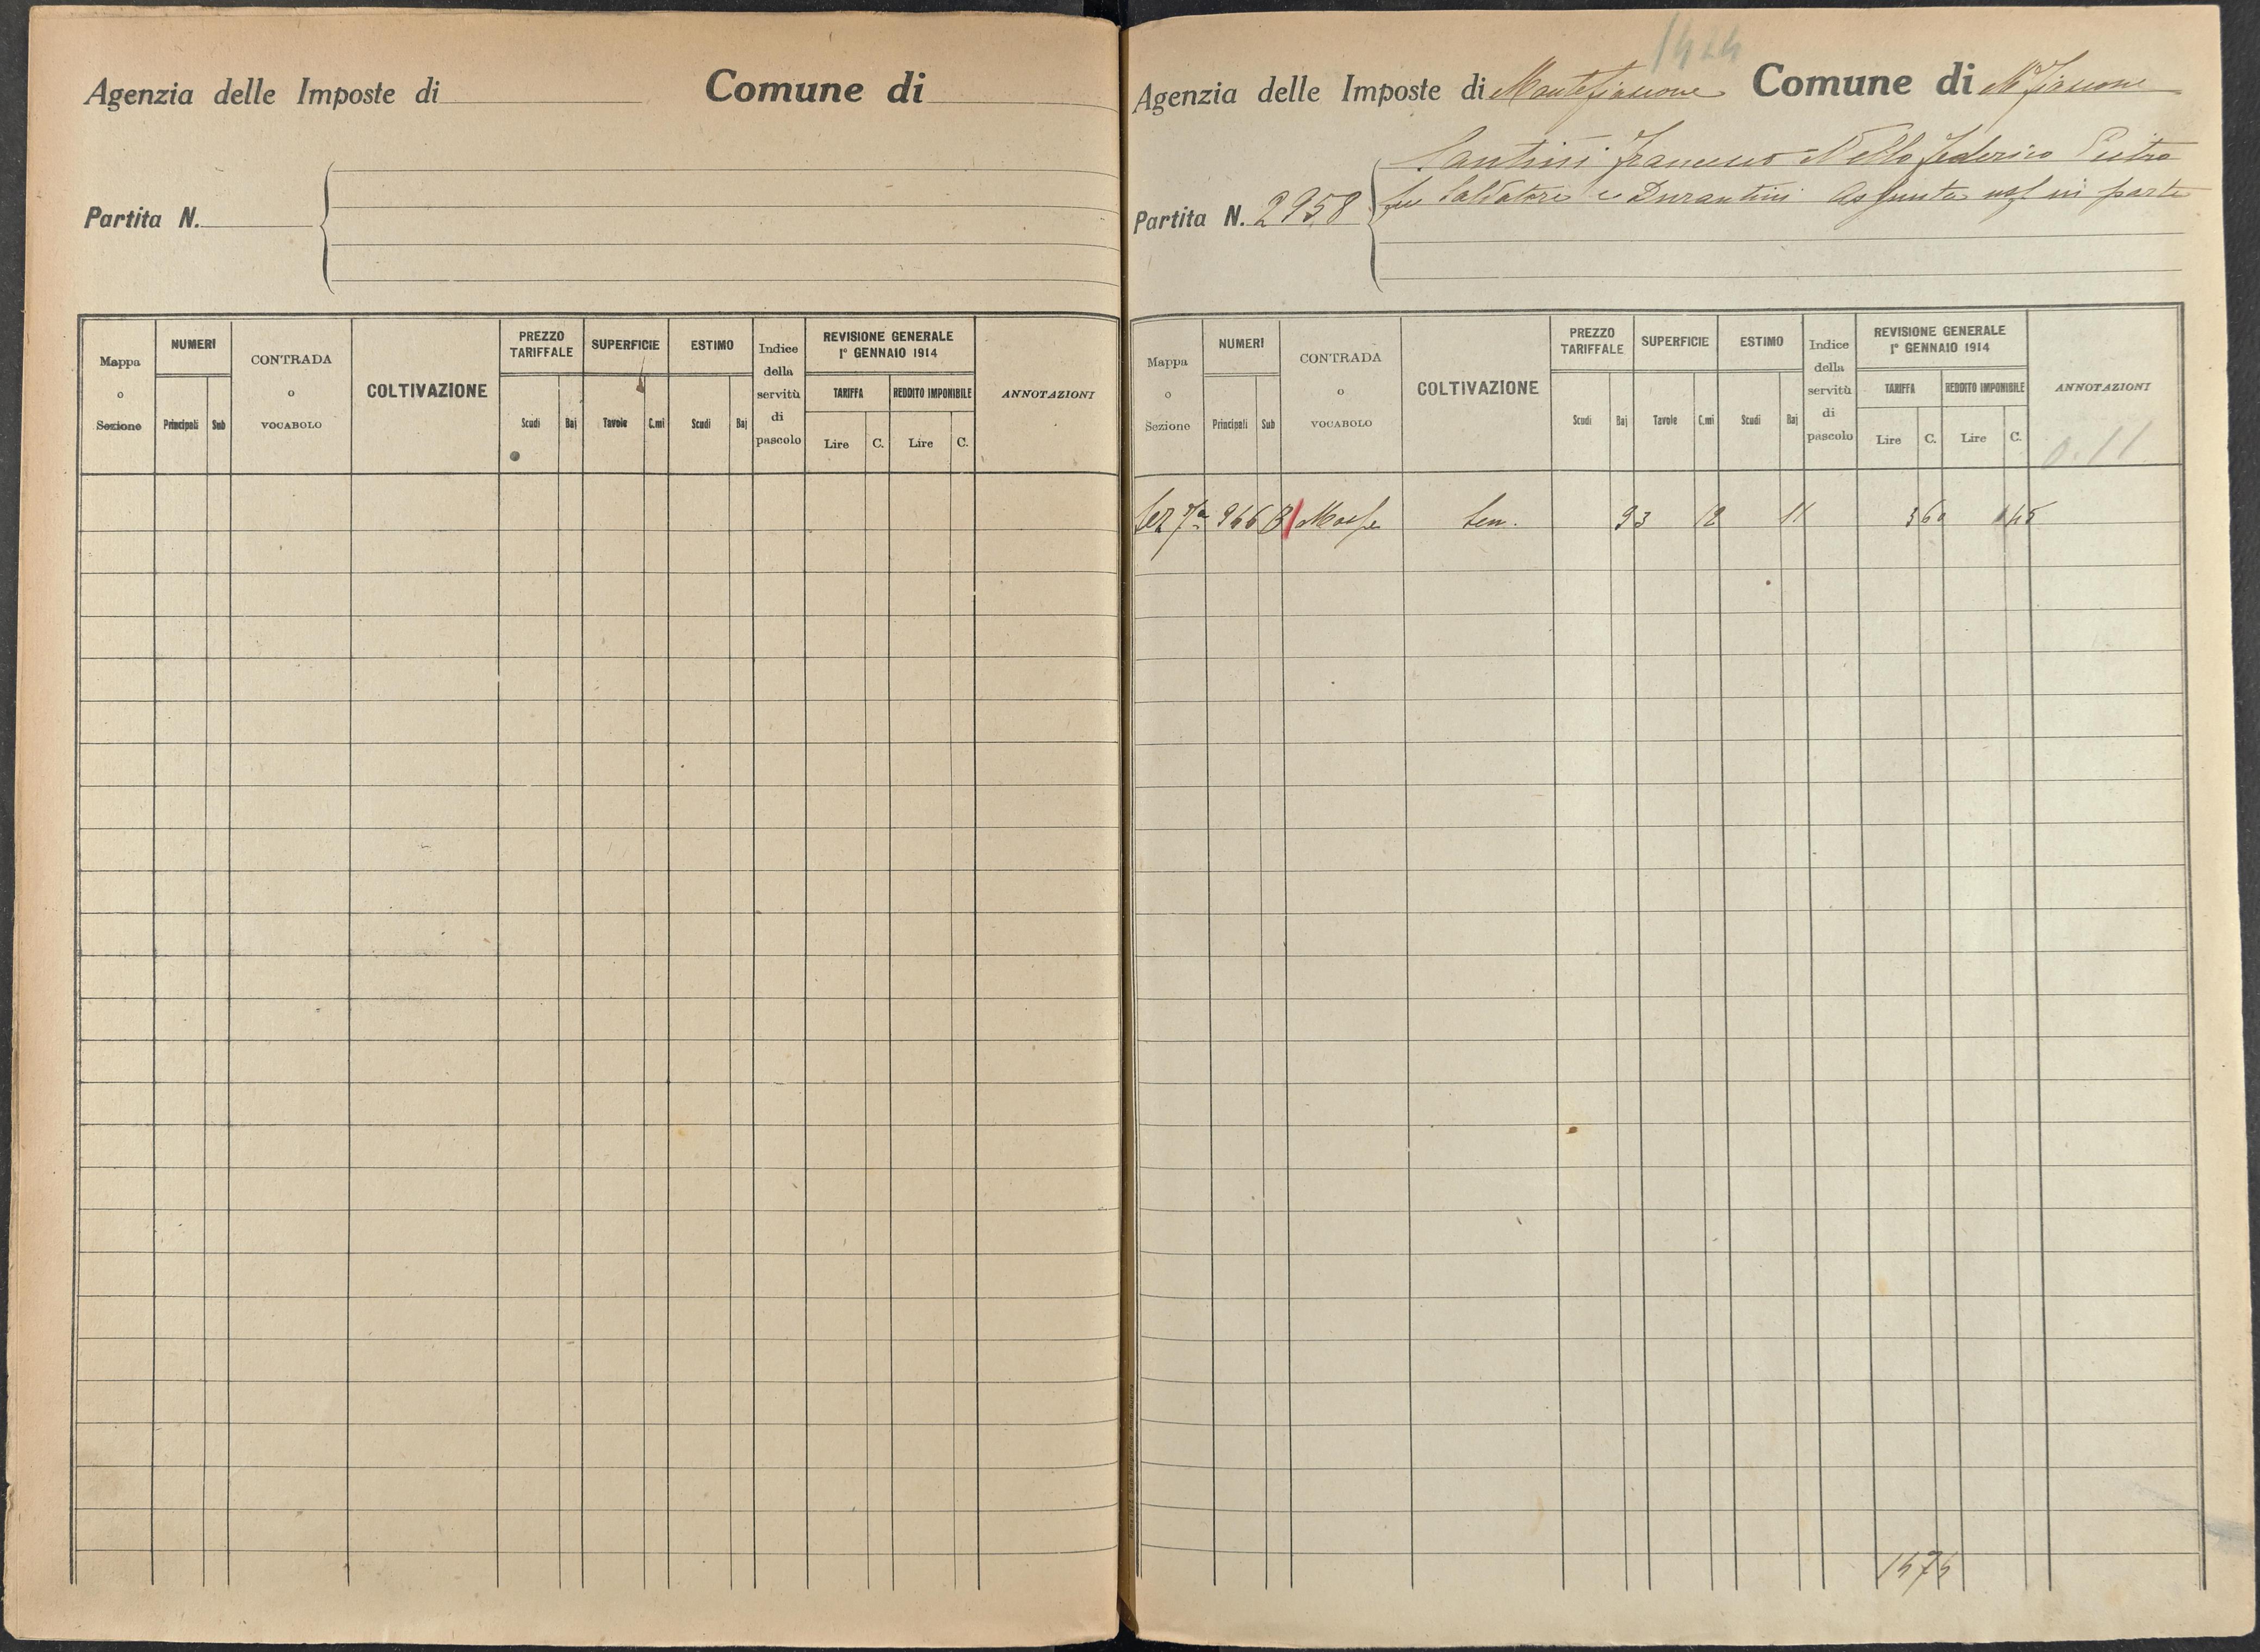 Agenzia delle Imposte di Comune di
Partita N.
Mappa o Sezione
NUMERI
Principali Sub
CONTRADA o VOCABOLO
COLTIVAZIONE
PREZZO TARIFFALE
Scudi Baj
SUPERFICIE
Tavole C.mi
ESTIMO
Scudi Baj
Indice della servitù di pascolo
REVISIONE GENERALE
1º GENNAIO 1914
TARIFFA REDDITO IMPONIBILE
Lire C. Lire C.
ANNOTAZIONI
Agenzia delle Imposte di Montefiascone Comune di M Fiascone
Santini Francesco Nello Federico Pietro
Partita N. 2958 fu Salvatore e Durantini Assunta usf in parte
Mappa o Sezione
NUMERI
Principali Sub
CONTRADA o VOCABOLO
COLTIVAZIONE
PREZZO TARIFFALE
Scudi Baj
SUPERFICIE
Tavole C.mi
ESTIMO
Scudi Baj
Indice della servitù di pascolo
REVISIONE GENERALE
1º GENNAIO 1914
TARIFFA REDDITO IMPONIBILE
Lire C. Lire C.
ANNOTAZIONI
0.11
Sez 7a 966 Sem. 93 12 11 360